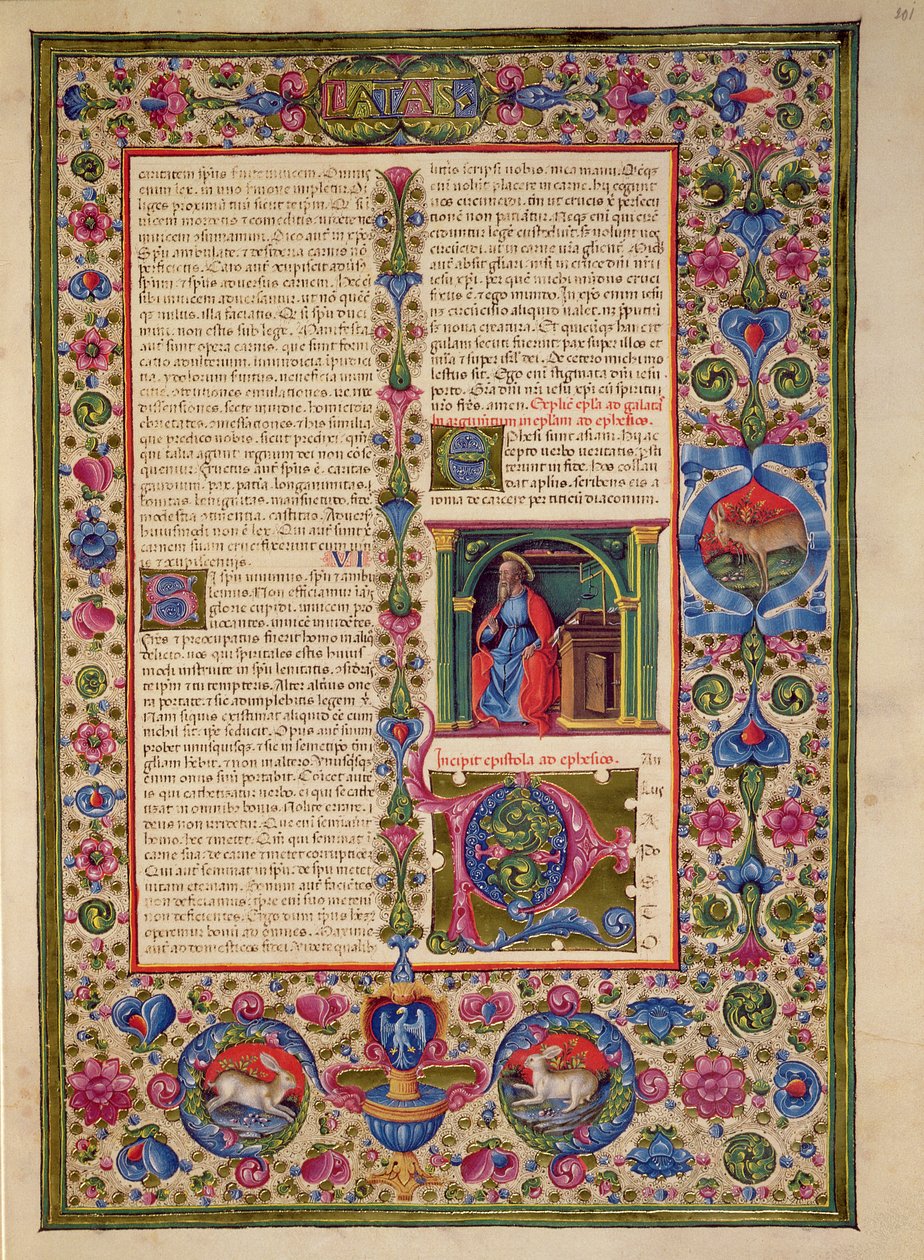 201
LATAS
caritatem spũs servite invicem. Omnis
enim lex in uno sermone impletur. Di
liges proximũ tuũ sicut te ipm. Q si
invicem mordetis et comeditis, videte ne
invicem consumamini. Dico aut in xpo
Spũ ambulate, et desideria carnis nõ
perficietis. Caro aut concupiscit adversus
spm, et spũs adversus carnem. Hec enim
sibi invicem adversantur, ut nõ quecũq
vultis, illa faciatis. Q si spũ duci
mini, non estis sub lege. Manifesta
aut sunt opera carnis, que sunt forni
catio
dissensiones, secte invidie, homicidia
ebrietates, comessationes et his similia
que predico vobis, sicut predixi, qm
qui talia agunt regnum dei non cõse
quentur. Fructus aut spũs ẽ, caritas
gaudium, pax, patiẽtia, longanimitas,
bonitas, benignitas, mansuetudo, fides
modestia, continentia, castitas. Adversus
huiusmodi non ẽ lex. Qui aut sunt xpi
carnem suam crucifixerunt cum
VI
Si spũ vivimus, spũ et ambu
lemus. Non efficiamur inanis
glorie cupidi, invicem pro
vocantes, invicẽ invidẽtes.
Fratres et si preoccupatus fuerit homo in aliquo
delicto, vos qui spirituales estis huius
modi instruite in spũ lenitatis,
te ipm ne et tu tempteris. Alter alterius one
ra portate, et sic adimplebitis legem xpi.
Nam si quis existimat aliquid se esse cum
nichil sit, ipse se seducit. Opus aut suum
probet unusquisq, et sic in semetipso tm
gliam habebit, et non in altero. Unusquisq
enim onus suũ portabit. Coicet aut
is qui cathezizatur verbo, ei qui se cathe
zizat in omnibus bonis. Nolite errare,
deus non irridetur. Que enim seminaverit
homo, hec et metet. Qm qui seminat in
carne sua, de carne et metet corruptionẽ
Qui aut seminat in spũ, de spũ metet
vitam eternam. Bonum aut facientes
non deficiamus, tpe enim suo metemus
non deficientes. Ergo dum tpus habemus
operemur bonũ ad omnes. Maxime
aut ad domesticos fidei. Videte qualibus
litteris scripsi vobis, mea manu. Quicũq
enĩ volũt placere in carne, hii cogunt
vos circũcidi, tm ut crucis xpi persecu
tionẽ non patiantur. Neq enĩ qui cir
cũciduntur legẽ custodiũt, sed volunt vos
circũcidi, ut in carne vra glientur. Michi
aut absit gliari, nisi in cruce dni nri
iesu xpi, per quẽ michi mũdus cruci
fixus ẽ, et ego mundo. In xpo enim iesu
neq circũcisio aliquid valet, neq preputiũ
sed nova creatura. Et quicũq hanc re
gulam secuti fuerint, pax super illos et
mia, et super isrl dei. De cetero nemo michi mo
lestus sit. Ego enĩ stigmata dni iesu
porto. Gra dni nri iesu xpi cũ spiritu
vro fres, amen. Explic epla ad galatas
Inc argumentum in eplam ad ephesios.
Ephesi sunt asiani. Hii ac
cepto verbo veritatis, psti
terunt in fide. Hos collau
dat aplus, scribens eis a
roma de carcere per titicũ diaconum.
Incipit epistola ad ephesios.
P
AU
LUS
A
PO
S
T
O